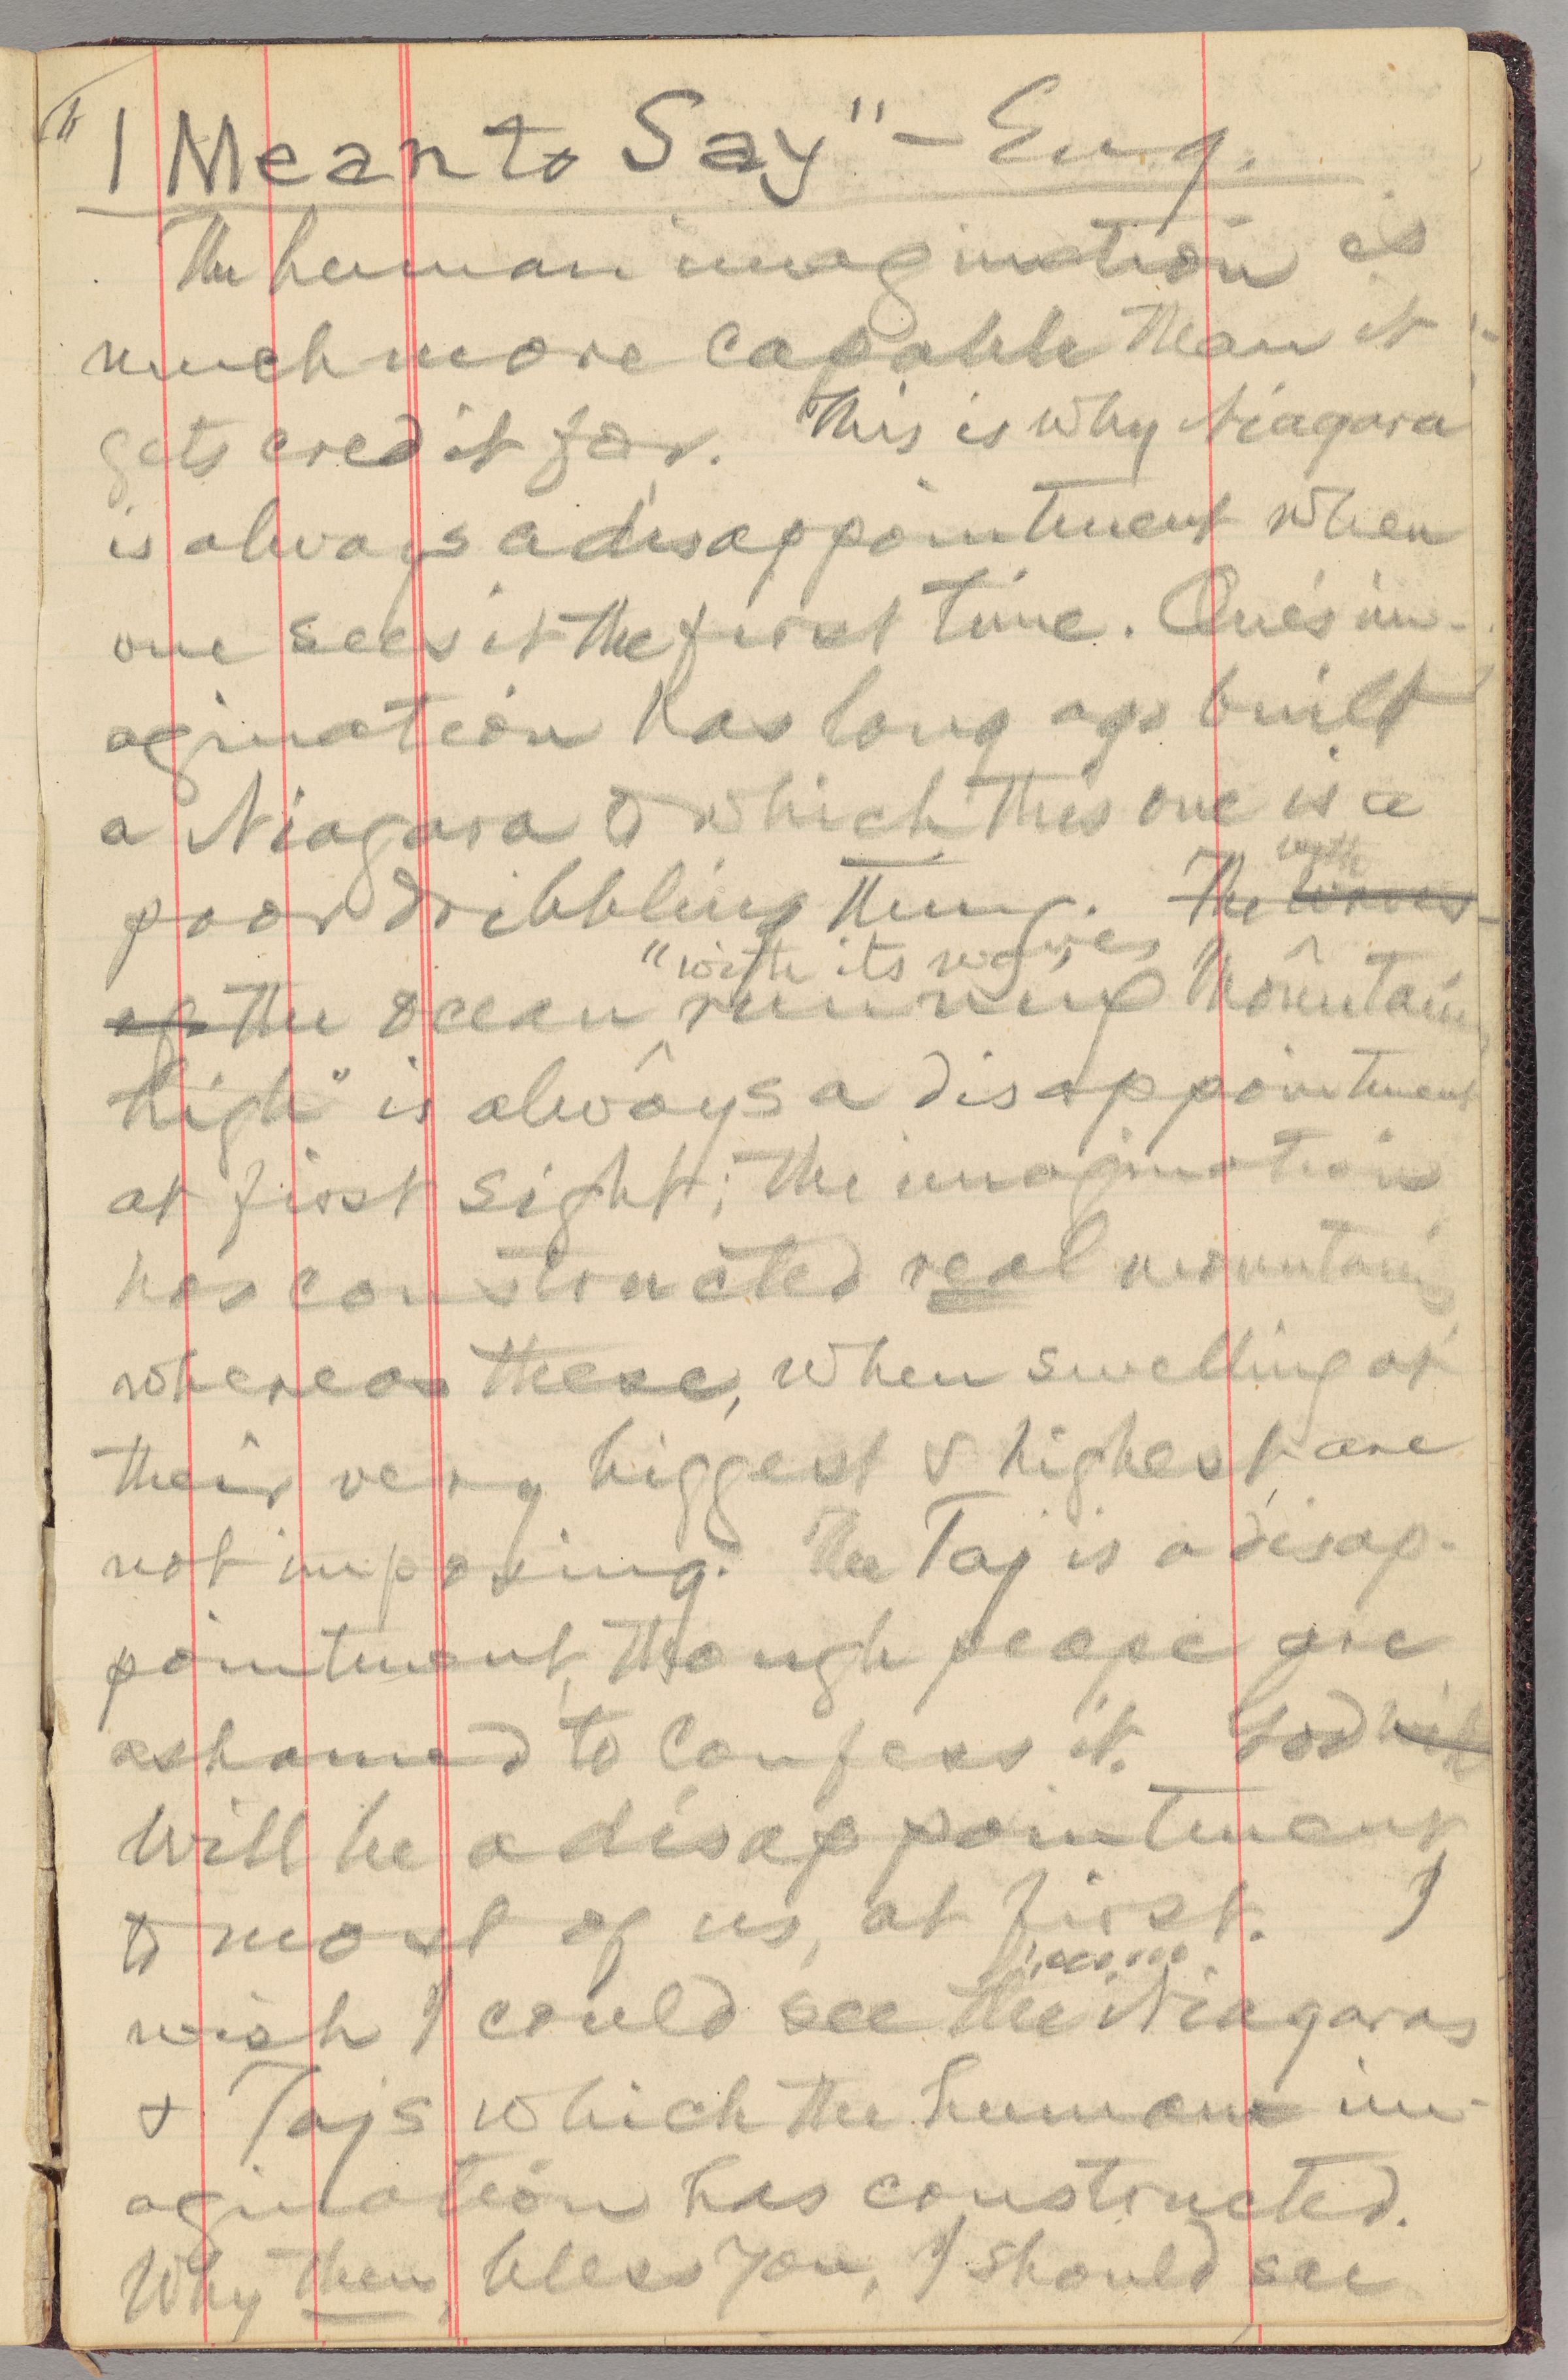 "I Mean to Say" – Eng.
The human imagination is
much more capable than it
gets credit for. This is why Niagara
is always a disappointment when
one sees it the first time. One's im-
agination has long ago built
a Niagara to which this one is a
poor dribbling thing. The waves
with
of the ocean running mountain
"with its waves
high" is always a disappointment
at first sight; the imagination
has constructed real mountains
whereas these, when swelling at
their very biggest & highest, are
not imposing. The Taj is a disap-
pointment, though peope are
ashamed to confess it. God
will be a disappointment
to most of us, at first. I
wish I could see the Niagaras
& Tajs which the human im-
agination has constructed.
Why then, bless you, I should see